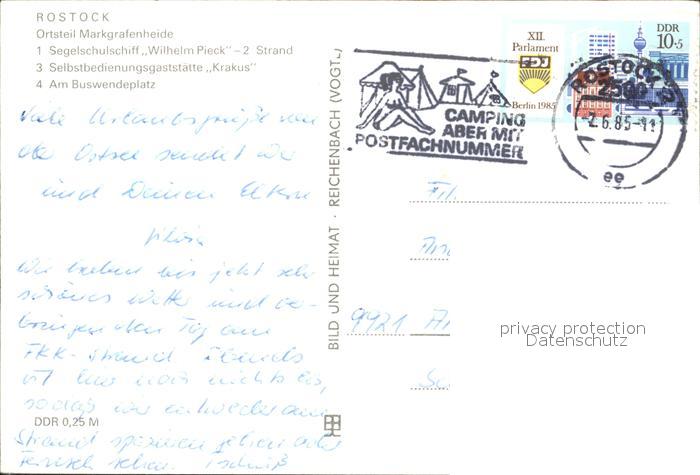 ROSTOCK
Ortsteil Markgrafenheide
1 Segelschulschiff „Wilhelm Pieck" – 2 Strand
3 Selbstbedienungsgaststätte „Krakus"
4 Am Buswendeplatz
Viele Urlaubsgrüße von
der Ostsee sendet Dir
und Deinen Eltern
Silvia
Wir haben bis jetzt sehr
schönes Wetter und ver-
bringen den Tag am
FKK-Strand. Abends
ist hier noch nichts los,
sodaß wir entweder am
Strand spazieren gehen oder
Fernseh sehen. Tschüß
DDR 0,25 M
BILD UND HEIMAT · REICHENBACH (VOGTL.)
XII.
Parlament
FDJ
Berlin 1985
DDR
10+5
CAMPING
ABER MIT
POSTFACHNUMMER
ROSTOCK
2500
2.6.85-11
ee
9921
privacy protection
Datenschutz